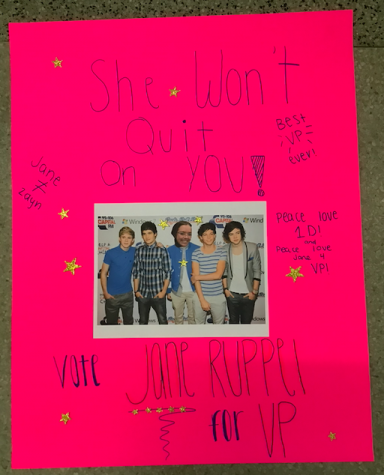 She Won't
Quit
on YOU!
BEST
VP
Ever!
Jane
≠
zayn
Peace love
1D!
and
Peace love
Jane 4
VP!
CAPITAL
FM
Wind
vote Jane Ruppel
for VP